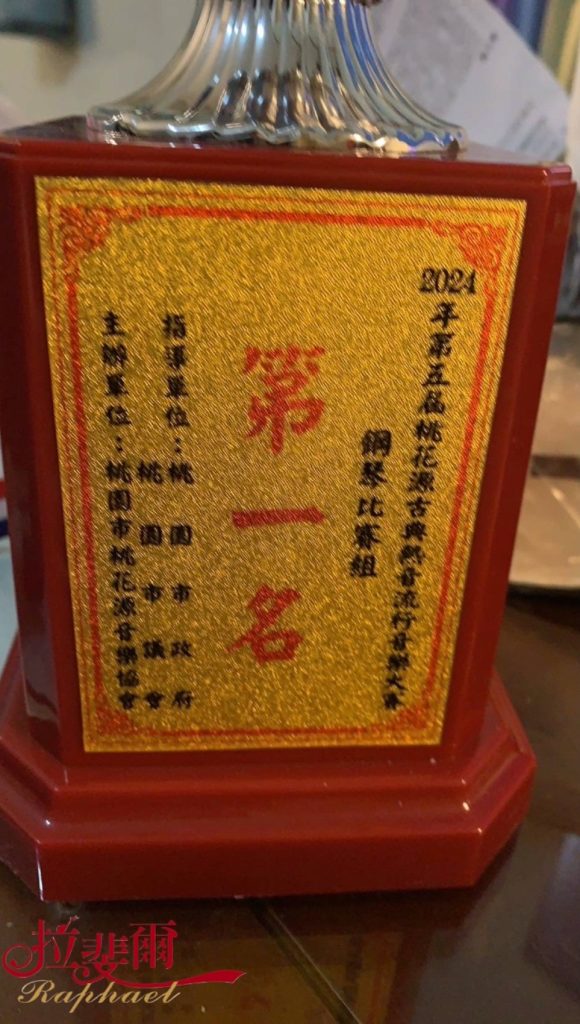 2024年第五屆桃花源古典熱音流行音樂大賽
鋼琴比賽組
第一名
指導單位：桃園市政府
桃園市議會
主辦單位：桃園市桃花源音樂協會
拉斐爾
Raphael